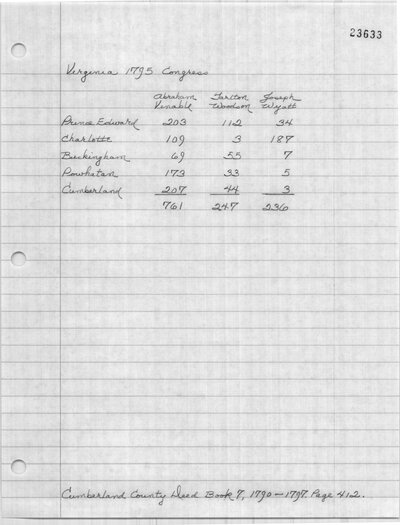 23633
Virginia 1795 Congress
Abraham Tarlton Joseph
Venable Woodson Wyatt
Prince Edward 203 112 34
Charlotte 109 3 187
Buckingham 69 55 7
Powhatan 173 33 5
Cumberland 207 44 3
761 247 236
Cumberland County Deed Book 7, 1790-1797. Page 412.